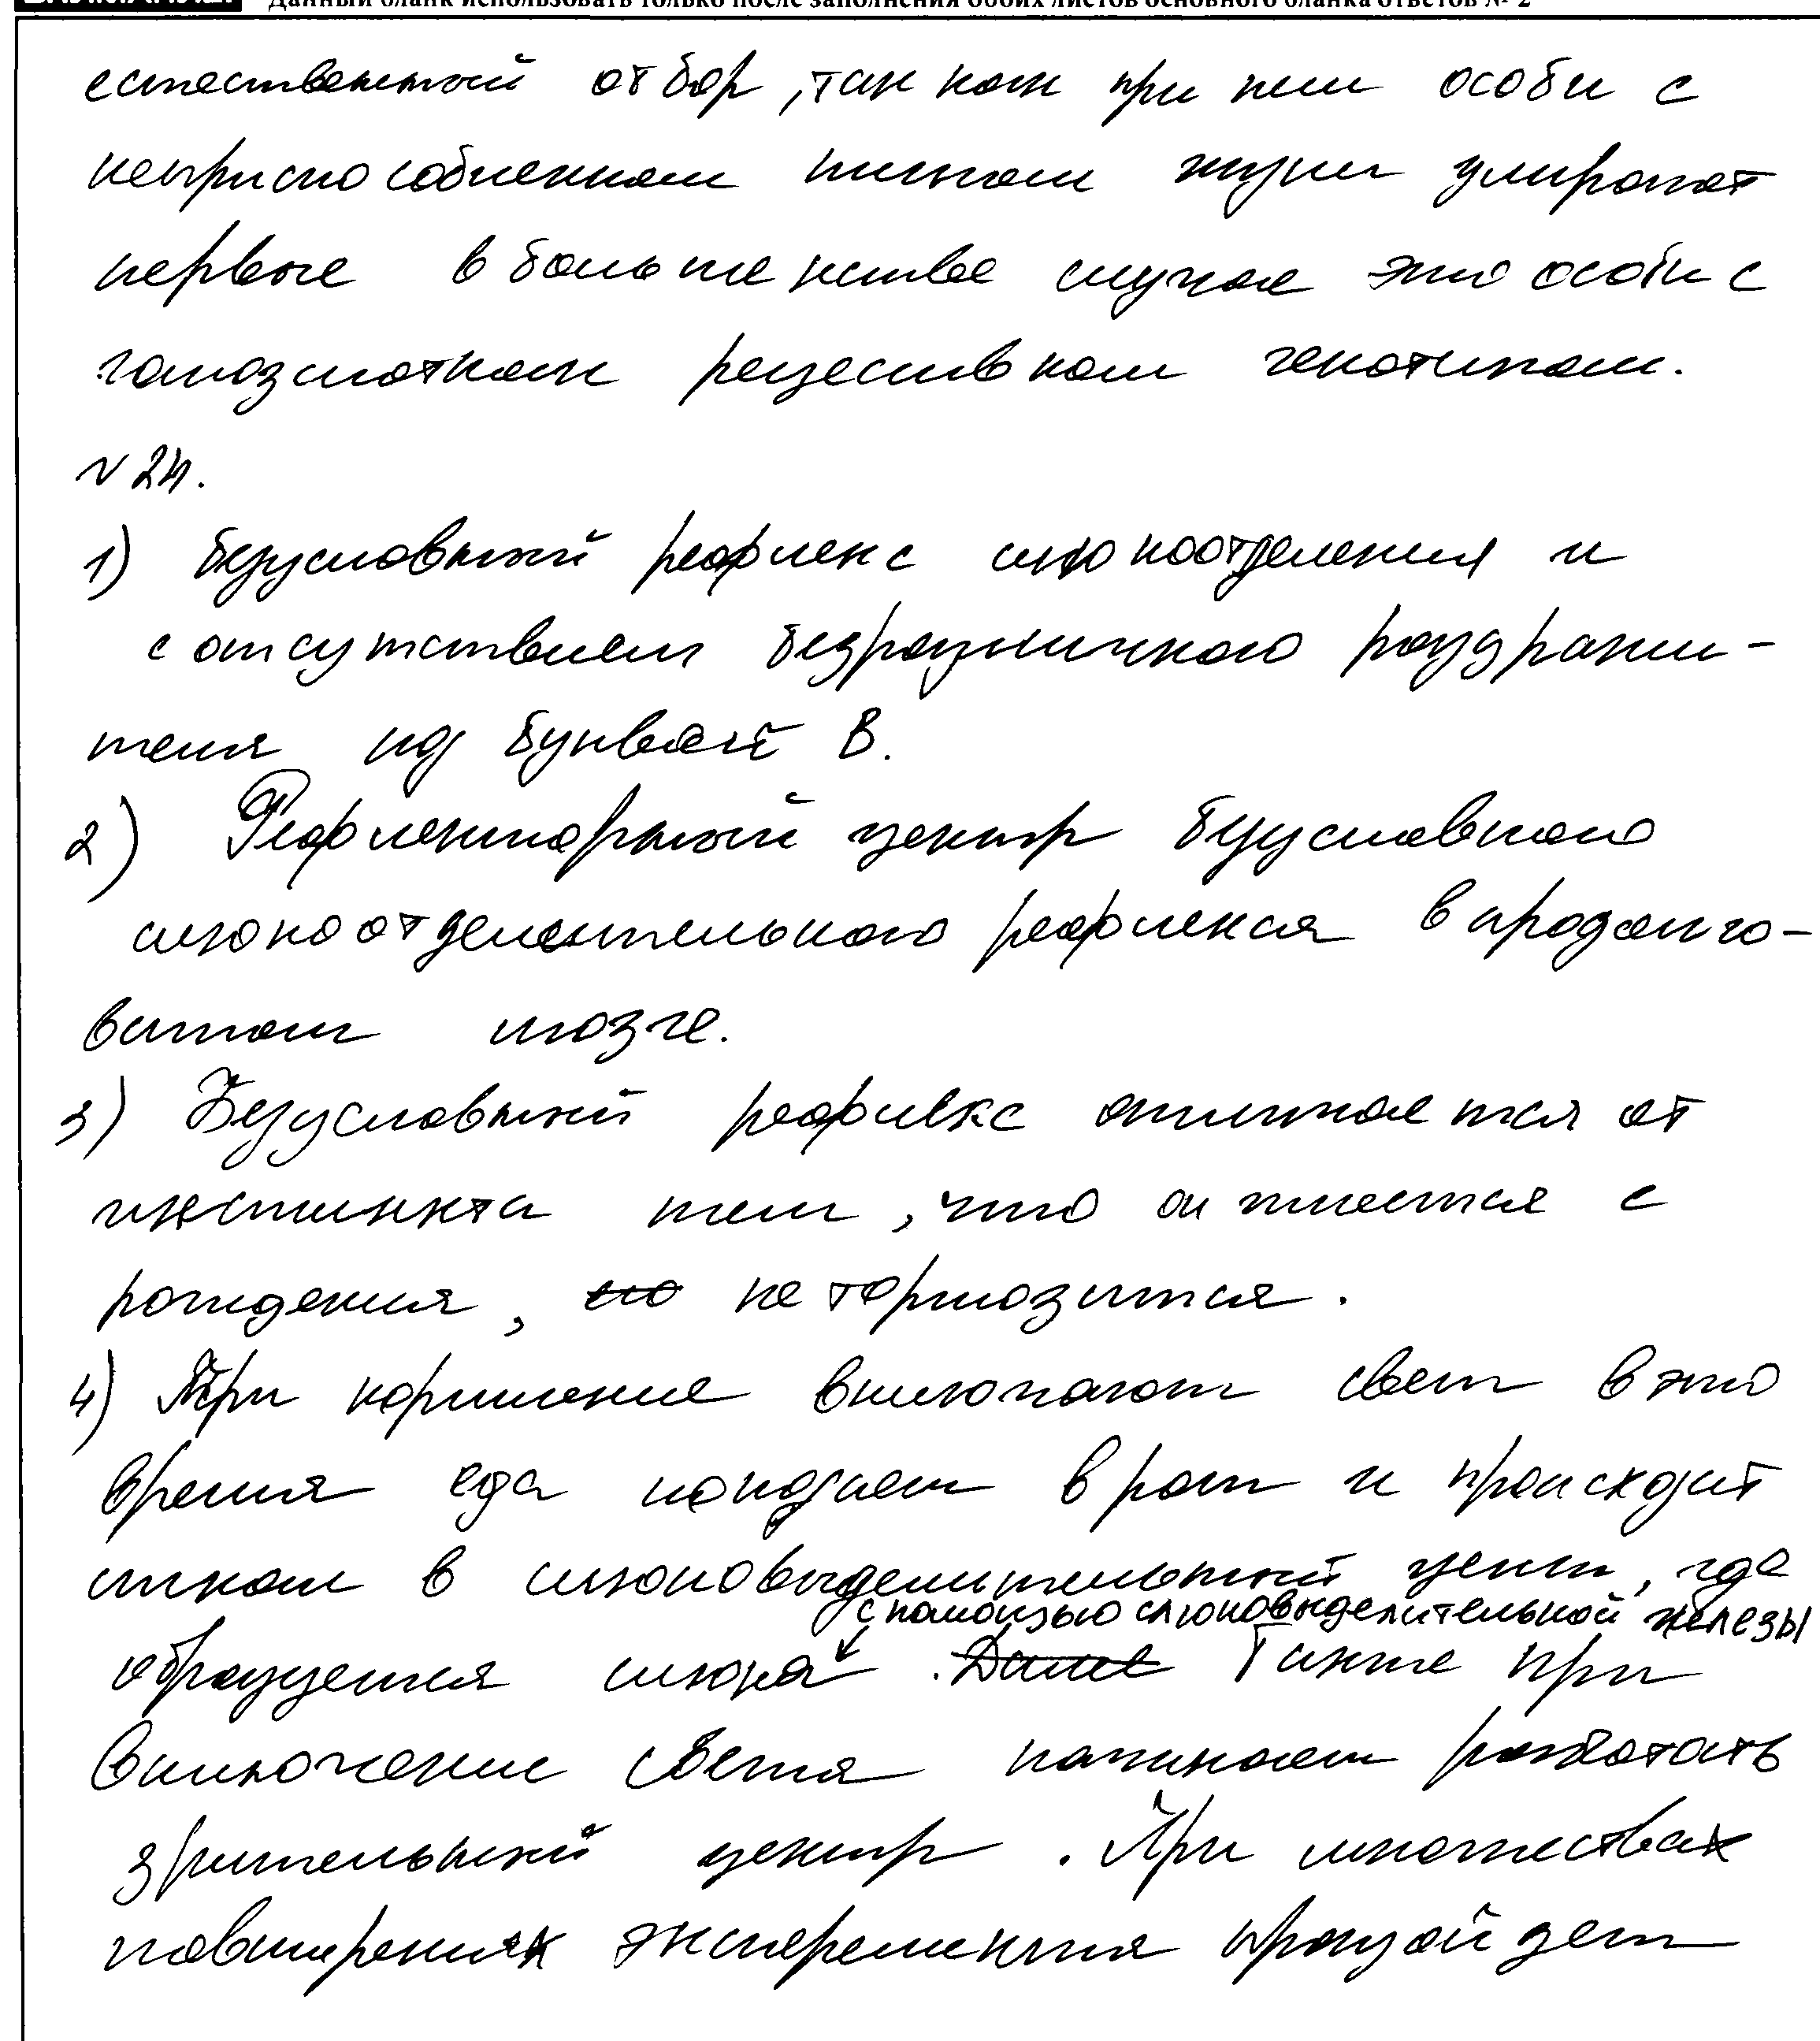 Данный бланк использовать только после заполнения обоих листов основного бланка ответов № 2
естественный отбор, так как при нем особи с
неприспособленном типом жизни умирают
первые в большенстве случае это особи с
гомозиготном рецесивном генотипом.
№ 24.
1) Безусловный рефлекс слюноотделения и
с отсутствием безразличного раздражи-
теля под буквой В.
2) Рефлекторный центр безусловного
слюноотделительного рефлекса в продолго-
ватом мозге.
3) Безусловный рефлекс отличается от
инстинкта тем, что он имеется с
рождения, но не тормозится.
4) При кормление включают свет в это
время еда попадает в рот и происходит
сигнал в слюновыделительный цент, где
с помощью слюновыделительной железы
образуется слюна. Далее Также при
включение света начинает работать
зрительный центр. При множествах
повторениях эксперемента произойдет